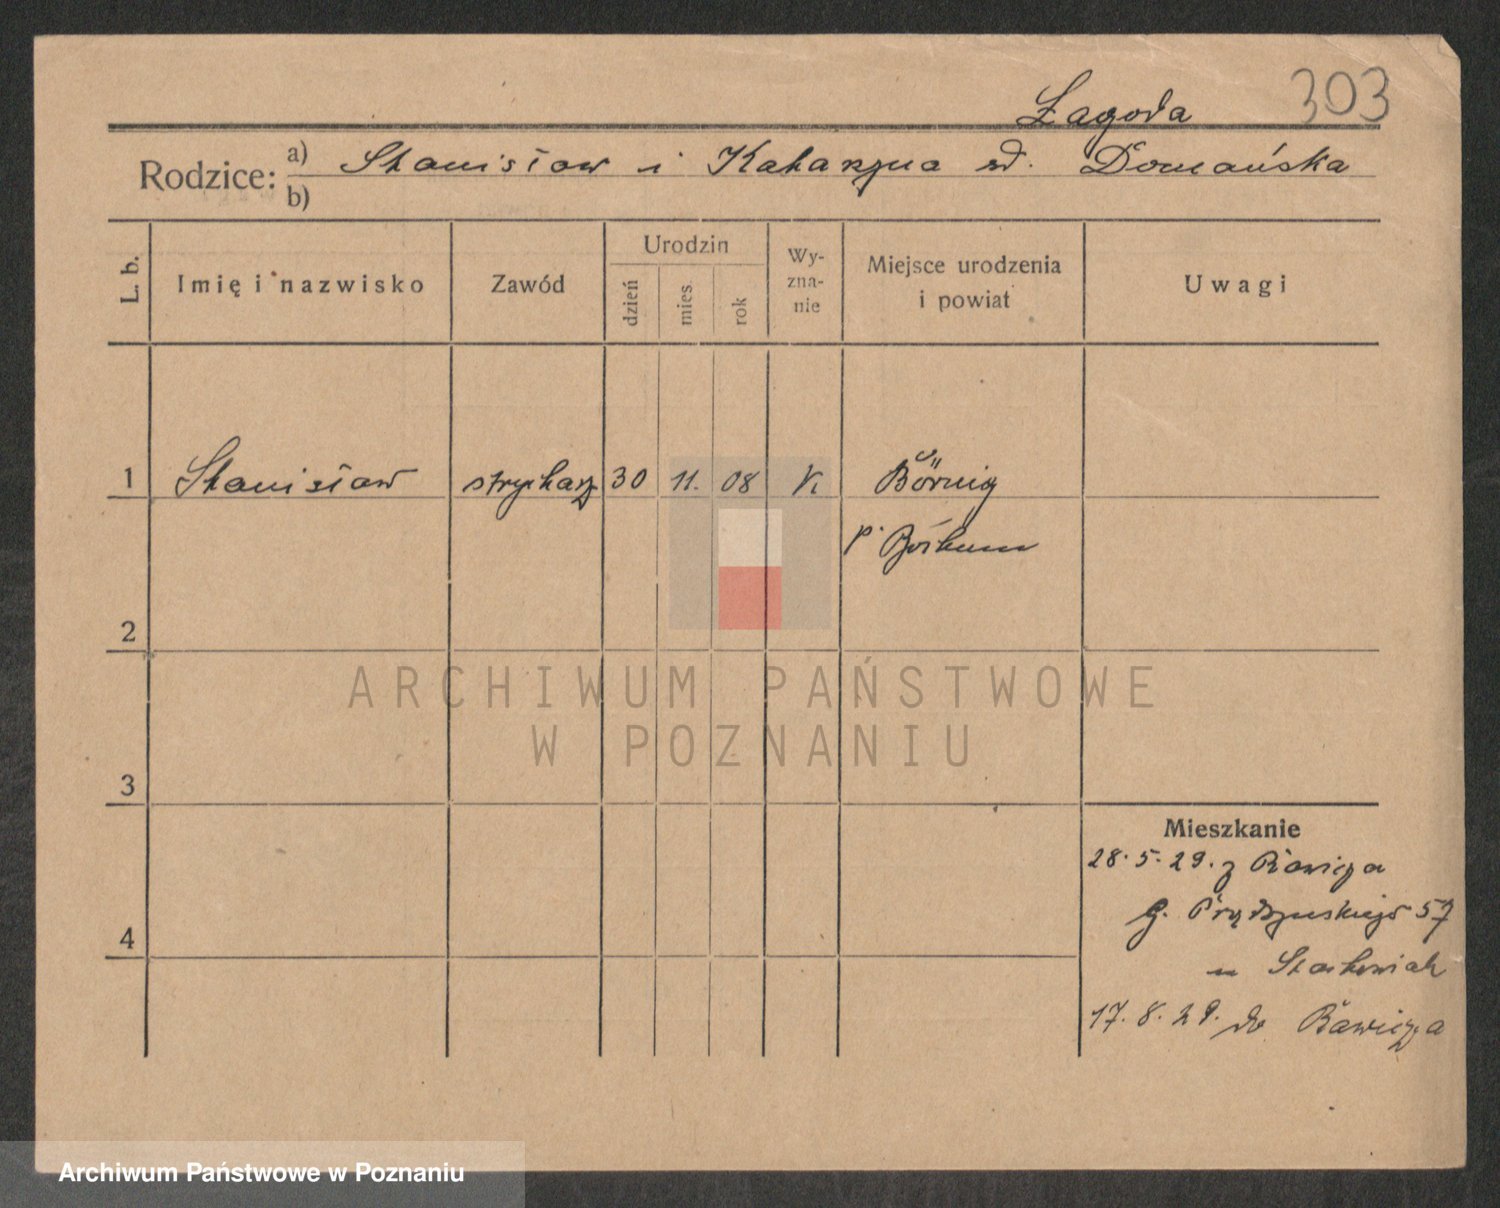 Łagoda 303
Rodzice: a) Stanisław i Katarzyna zd. Domańska
b)
L. b.
Imię i nazwisko
Zawód
Urodzin
dzień
mies.
rok
Wy-
zna-
nie
Miejsce urodzenia
i powiat
Uwagi
1 Stanisław strycharz 30 11. 08 Börnig
p. Bochum
2
ARCHIWUM PAŃSTWOWE
W POZNANIU
3
Mieszkanie
28.5.29. z Rawicza
G. Prądzyńskiego 57
Stachowiak
4
17.8.29. do Rawicza
Archiwum Państwowe w Poznaniu